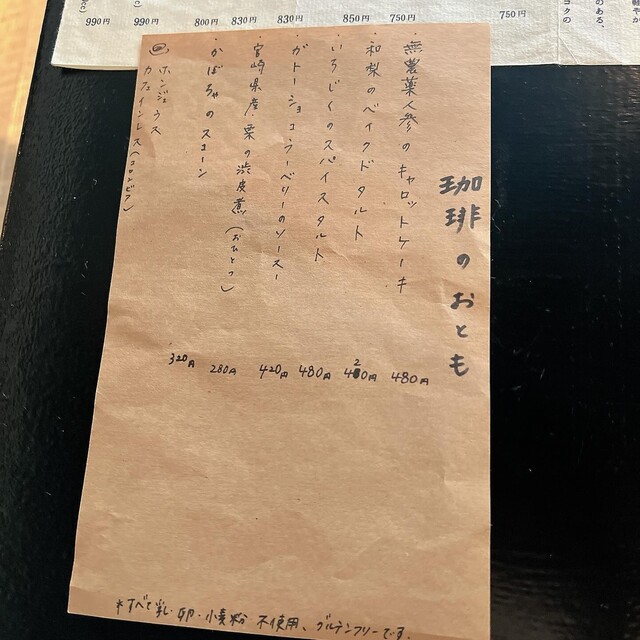 珈琲のおとも
・無農薬人参のキャロットケーキ
・和梨のベイクドタルト
・いちじくのスパイスタルト
・ガトーショコラ〜ベリーのソース〜
・宮崎県産・栗の渋皮煮(おひとつ)
・かぼちゃのスコーン
ホンジュラス
カフェインレス(コロンビア)
480円
420円
480円
420円
280円
320円
*すべて乳・卵・小麦粉 不使用、グルテンフリーです。
750円
750円
850円
830円
830円
800円
990円
990円